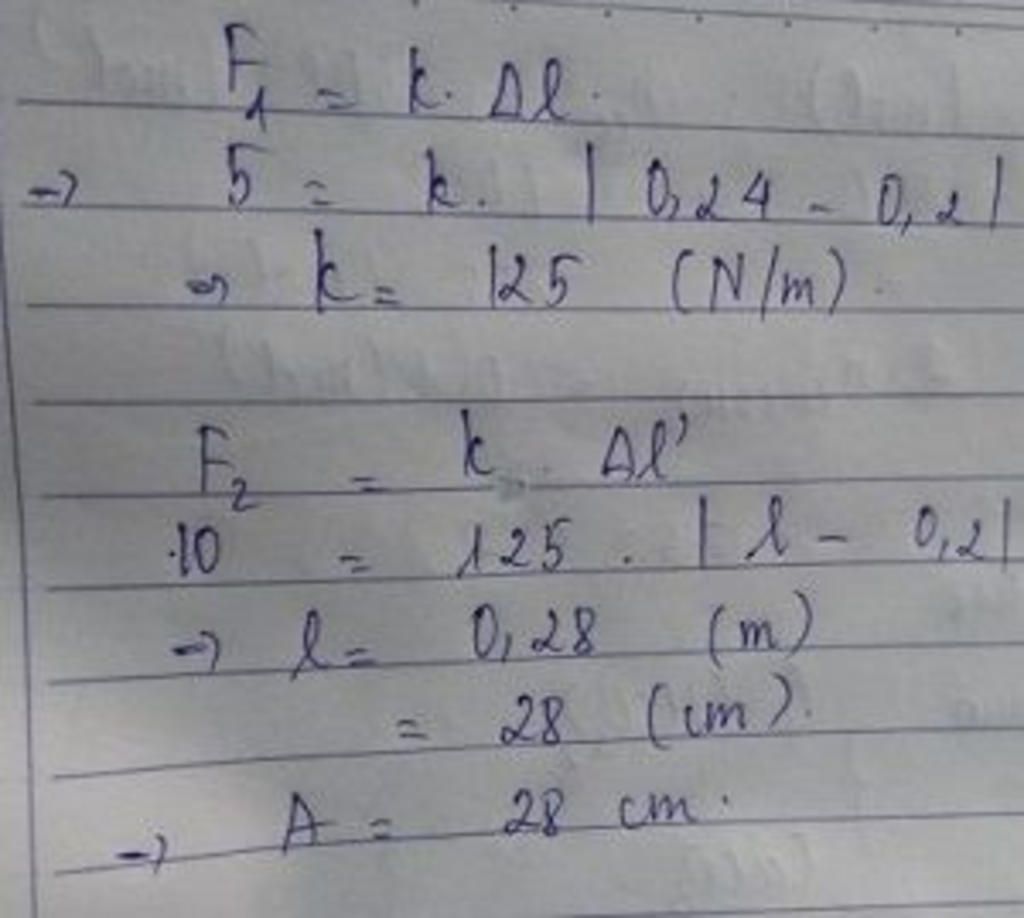 F₁ = k. Δl.
→ 5 = k. | 0,24 - 0,2 |
→ k = 125 (N/m).
F₂ = k. Δl'
10 = 125 . | l - 0,2 |
→ l = 0,28 (m)
= 28 (cm).
→ A = 28 cm.